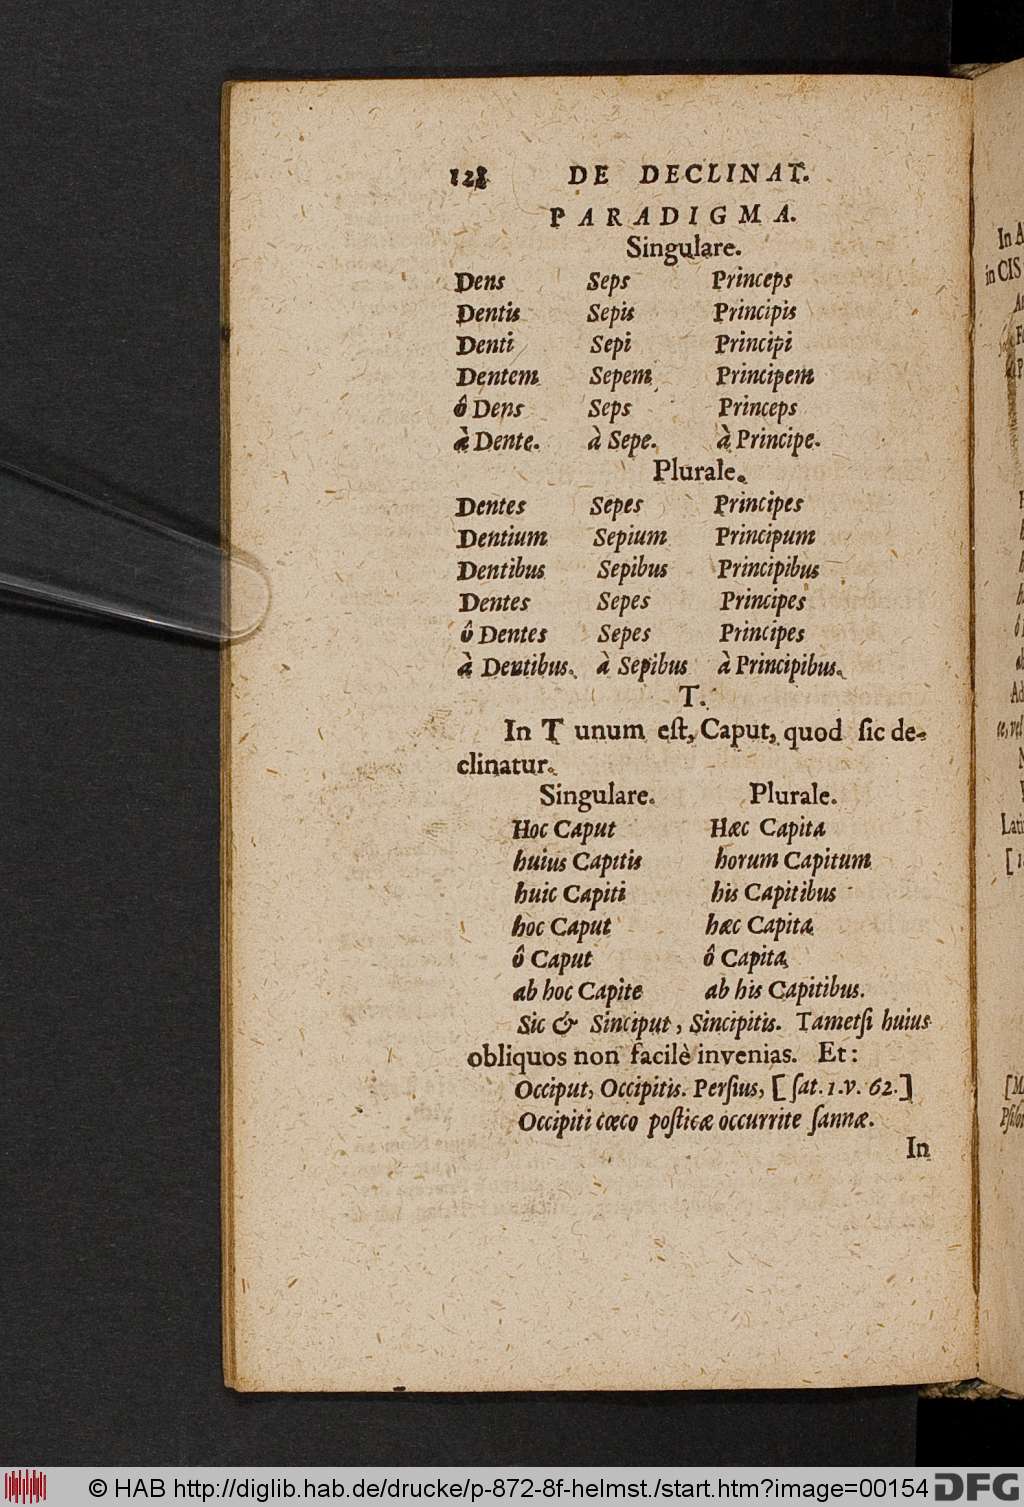 128 DE DECLINAT.
PARADIGMA.
Singulare.
Dens Seps Princeps
Dentis Sepis Principis
Denti Sepi Principi
Dentem Sepem Principem
ô Dens Seps Princeps
à Dente. à Sepe. à Principe.
Plurale.
Dentes Sepes Principes
Dentium Sepium Principum
Dentibus Sepibus Principibus
Dentes Sepes Principes
ô Dentes Sepes Principes
à Dentibus. à Sepibus à Principibus.
T.
In T unum eſt, Caput, quod ſic de-
clinatur.
Singulare. Plurale.
Hoc Caput Hæc Capita
huius Capitis horum Capitum
huic Capiti his Capitibus
hoc Caput hæc Capita
ô Caput ô Capita
ab hoc Capite ab his Capitibus.
Sic & Sinciput, Sincipitis. Tametſi huius
obliquos non facilè invenias. Et:
Occiput, Occipitis. Perſius, [ſat. 1. v. 62.]
Occipiti cœco poſticæ occurrite ſannæ.
In
In A
in CIS
Lati
© HAB http://diglib.hab.de/drucke/p-872-8f-helmst./start.htm?image=00154 DFG